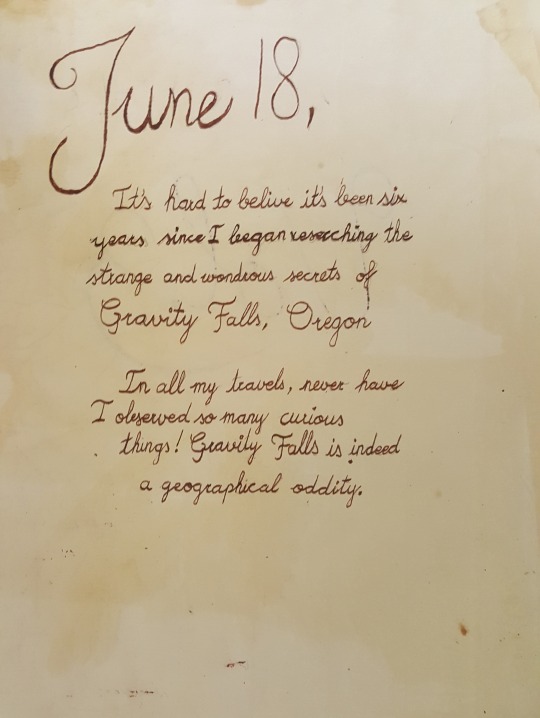 June 18,
It's hard to belive it's been six
years since I began reseching the
strange and wondrous secrets of
Gravity Falls, Oregon
In all my travels, never have
I observed so many curious
things! Gravity Falls is indeed
a geographical oddity.